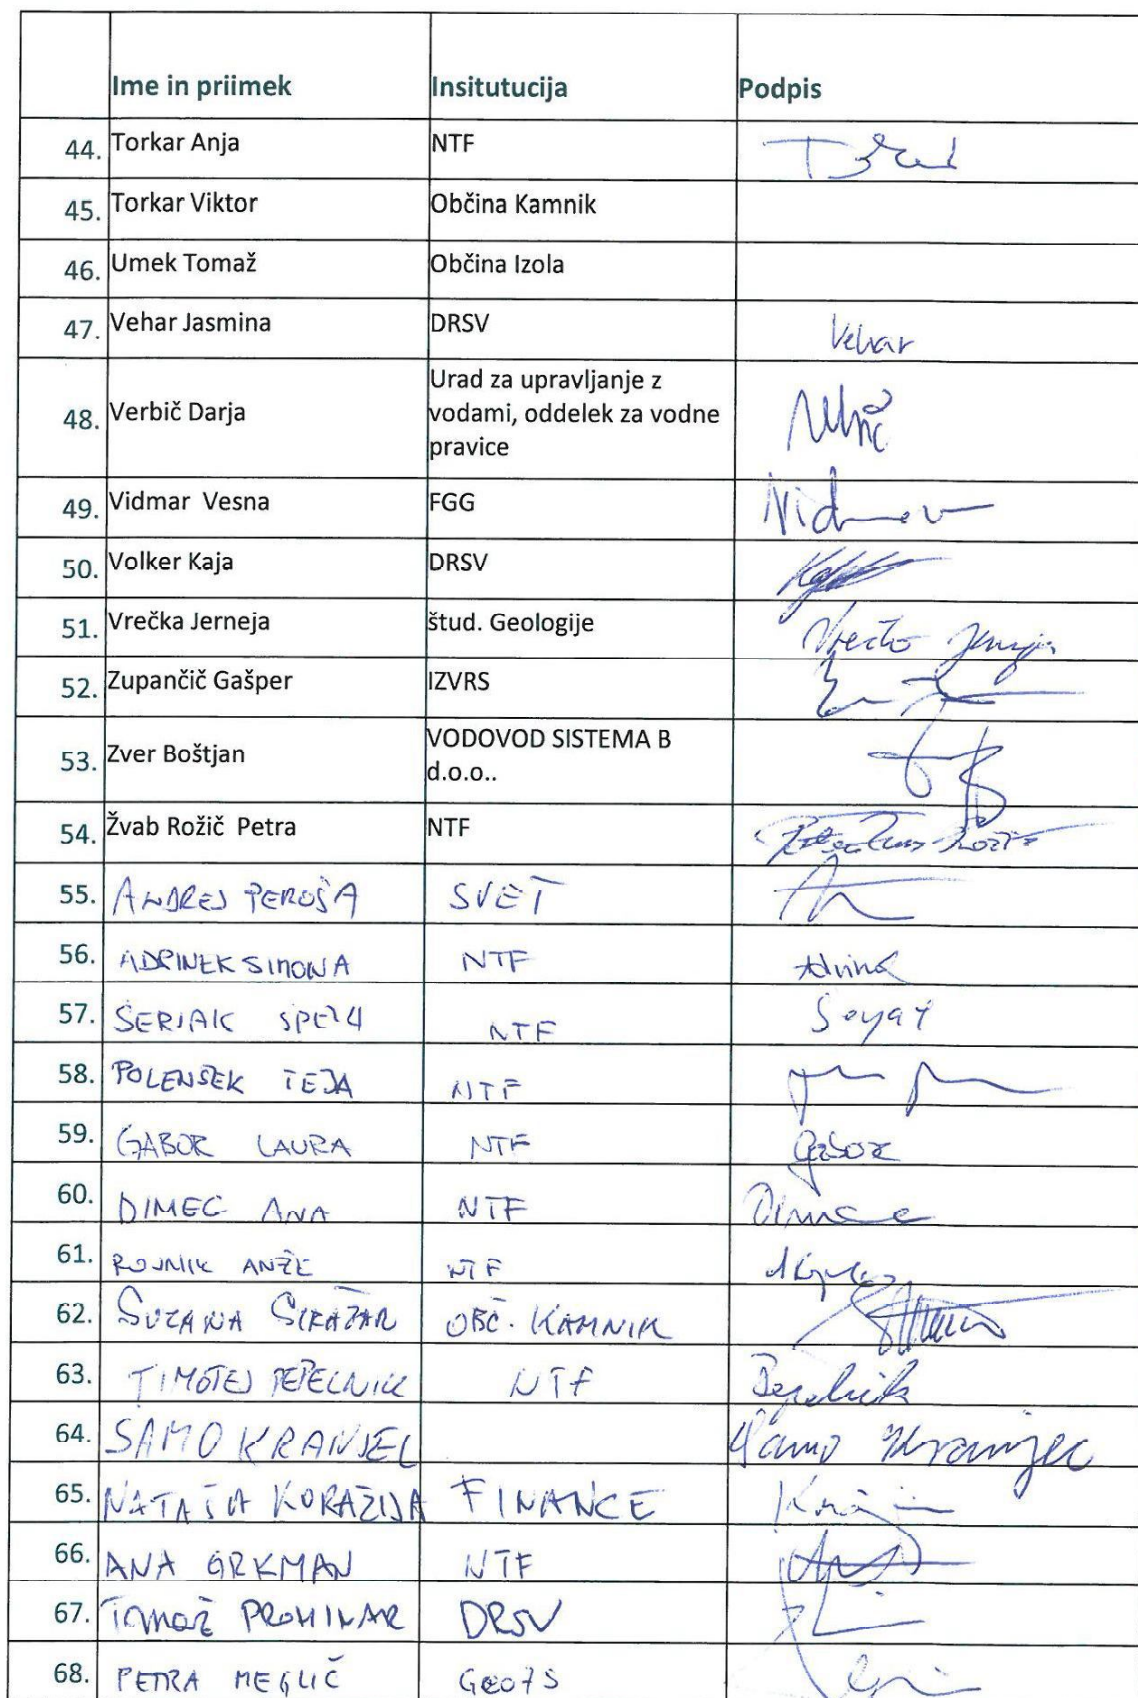 Ime in priimek Insitutucija Podpis
44. Torkar Anja NTF
45. Torkar Viktor Občina Kamnik
46. Umek Tomaž Občina Izola
47. Vehar Jasmina DRSV Vehar
48. Verbič Darja Urad za upravljanje z
vodami, oddelek za vodne
pravice
49. Vidmar Vesna FGG
50. Volker Kaja DRSV
51. Vrečka Jerneja štud. Geologije
52. Zupančič Gašper IZVRS
53. Zver Boštjan VODOVOD SISTEMA B
d.o.o..
54. Žvab Rožič Petra NTF
55. ANDREJ PEROŠA SVET
56. ADRINEK SIMONA NTF
57. SERJAK NTF
58. POLENŠEK TEJA NTF
59. GABOR LAURA NTF Gabor
60. DIMEC ANA NTF
61. ROJNIK ANŽE NTF
62. SUZANA STRAŽAR OBČ. KAMNIK
63. TIMOTEJ PEPELNIK NTF Pepelnik
64. SAMO KRANJEC Samo Kranjec
65. NATAŠA KORAŽIJA FINANCE
66. ANA GRKMAN NTF
67. TOMAŽ PROHINAR DRSV
68. PETRA MEGLIČ GeoZS